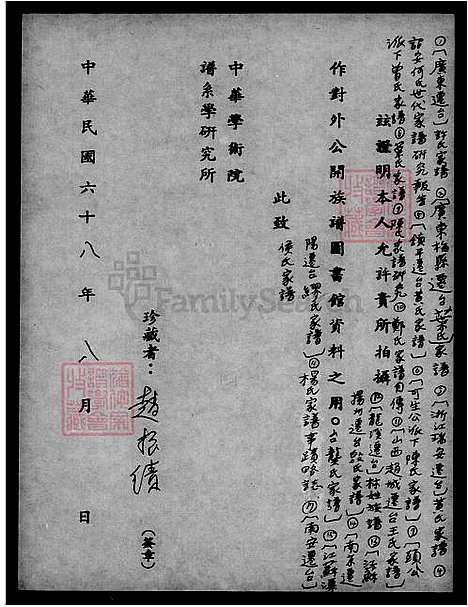 ①「廣東遷台」許氏家譜 ②「廣東梅縣遷台」葉氏家譜 ③「浙江瑞安遷台」黃氏家譜 ④
詔安何氏世代家譜研究報告 ⑤「鎮平遷台黃氏家譜」⑥「可生公派下陳氏家譜」⑦「顯公
派下曾氏家譜」⑧ 葉氏家譜 ⑨ 陳氏家譜研究 ⑩ 鄭氏家譜自傳 ⑪「山西趙城遷台王氏家譜」
⑫「龍溪遷台」林姓族譜 ⑬「江蘇
揚州遷台」殷氏家譜」⑭「南京遷
台龔氏家譜」⑮「江蘇溧
陽遷台」繆氏家譜」⑯ 楊氏家譜事蹟略誌 ⑰「南安遷台」
侯氏家譜
茲證明本人允許貴所拍攝
作對外公開族譜圖書館資料之用。
此致
中華學術院
譜系學研究所
珍藏者：趙振績（簽章）
中華民國六十八年八月 日
FamilySearch